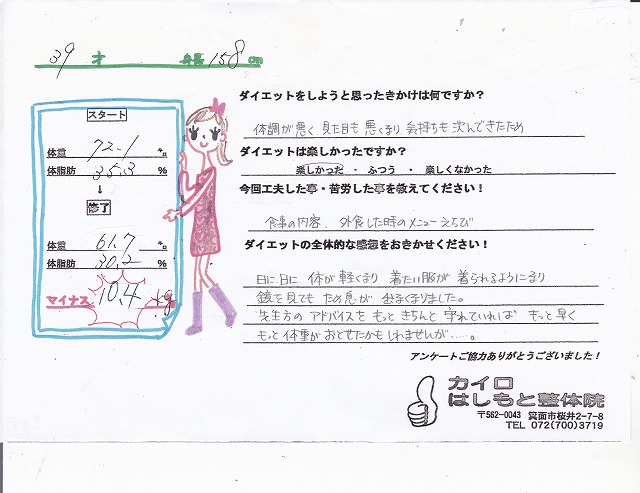 39 才 身長 158 cm
スタート
体重 72.1 kg
体脂肪 35.3 %
↓
修了
体重 61.7 kg
体脂肪 30.2 %
マイナス 10.4 kg
ダイエットをしようと思ったきかけは何ですか？
体調が悪く 見た目も悪くなり 気持ちも沈んできたため
ダイエットは楽しかったですか？
楽しかった ・ ふつう ・ 楽しくなかった
今回工夫した事・苦労した事を教えてください！
食事の内容、外食した時のメニューえらび
ダイエットの全体的な感想をおきかせください！
日に日に 体が軽くなり 着たい服が 着られるようになり
鏡を見ても ため息が 出なくなりました。
先生方の アドバイスを もっと きちんと 守れていれば もっと早く
もっと体重が おとせたかも しれませんが……。
アンケートご協力ありがとうございました！
カイロ
はしもと整体院
〒562-0043 箕面市桜井2-7-8
TEL 072(700)3719